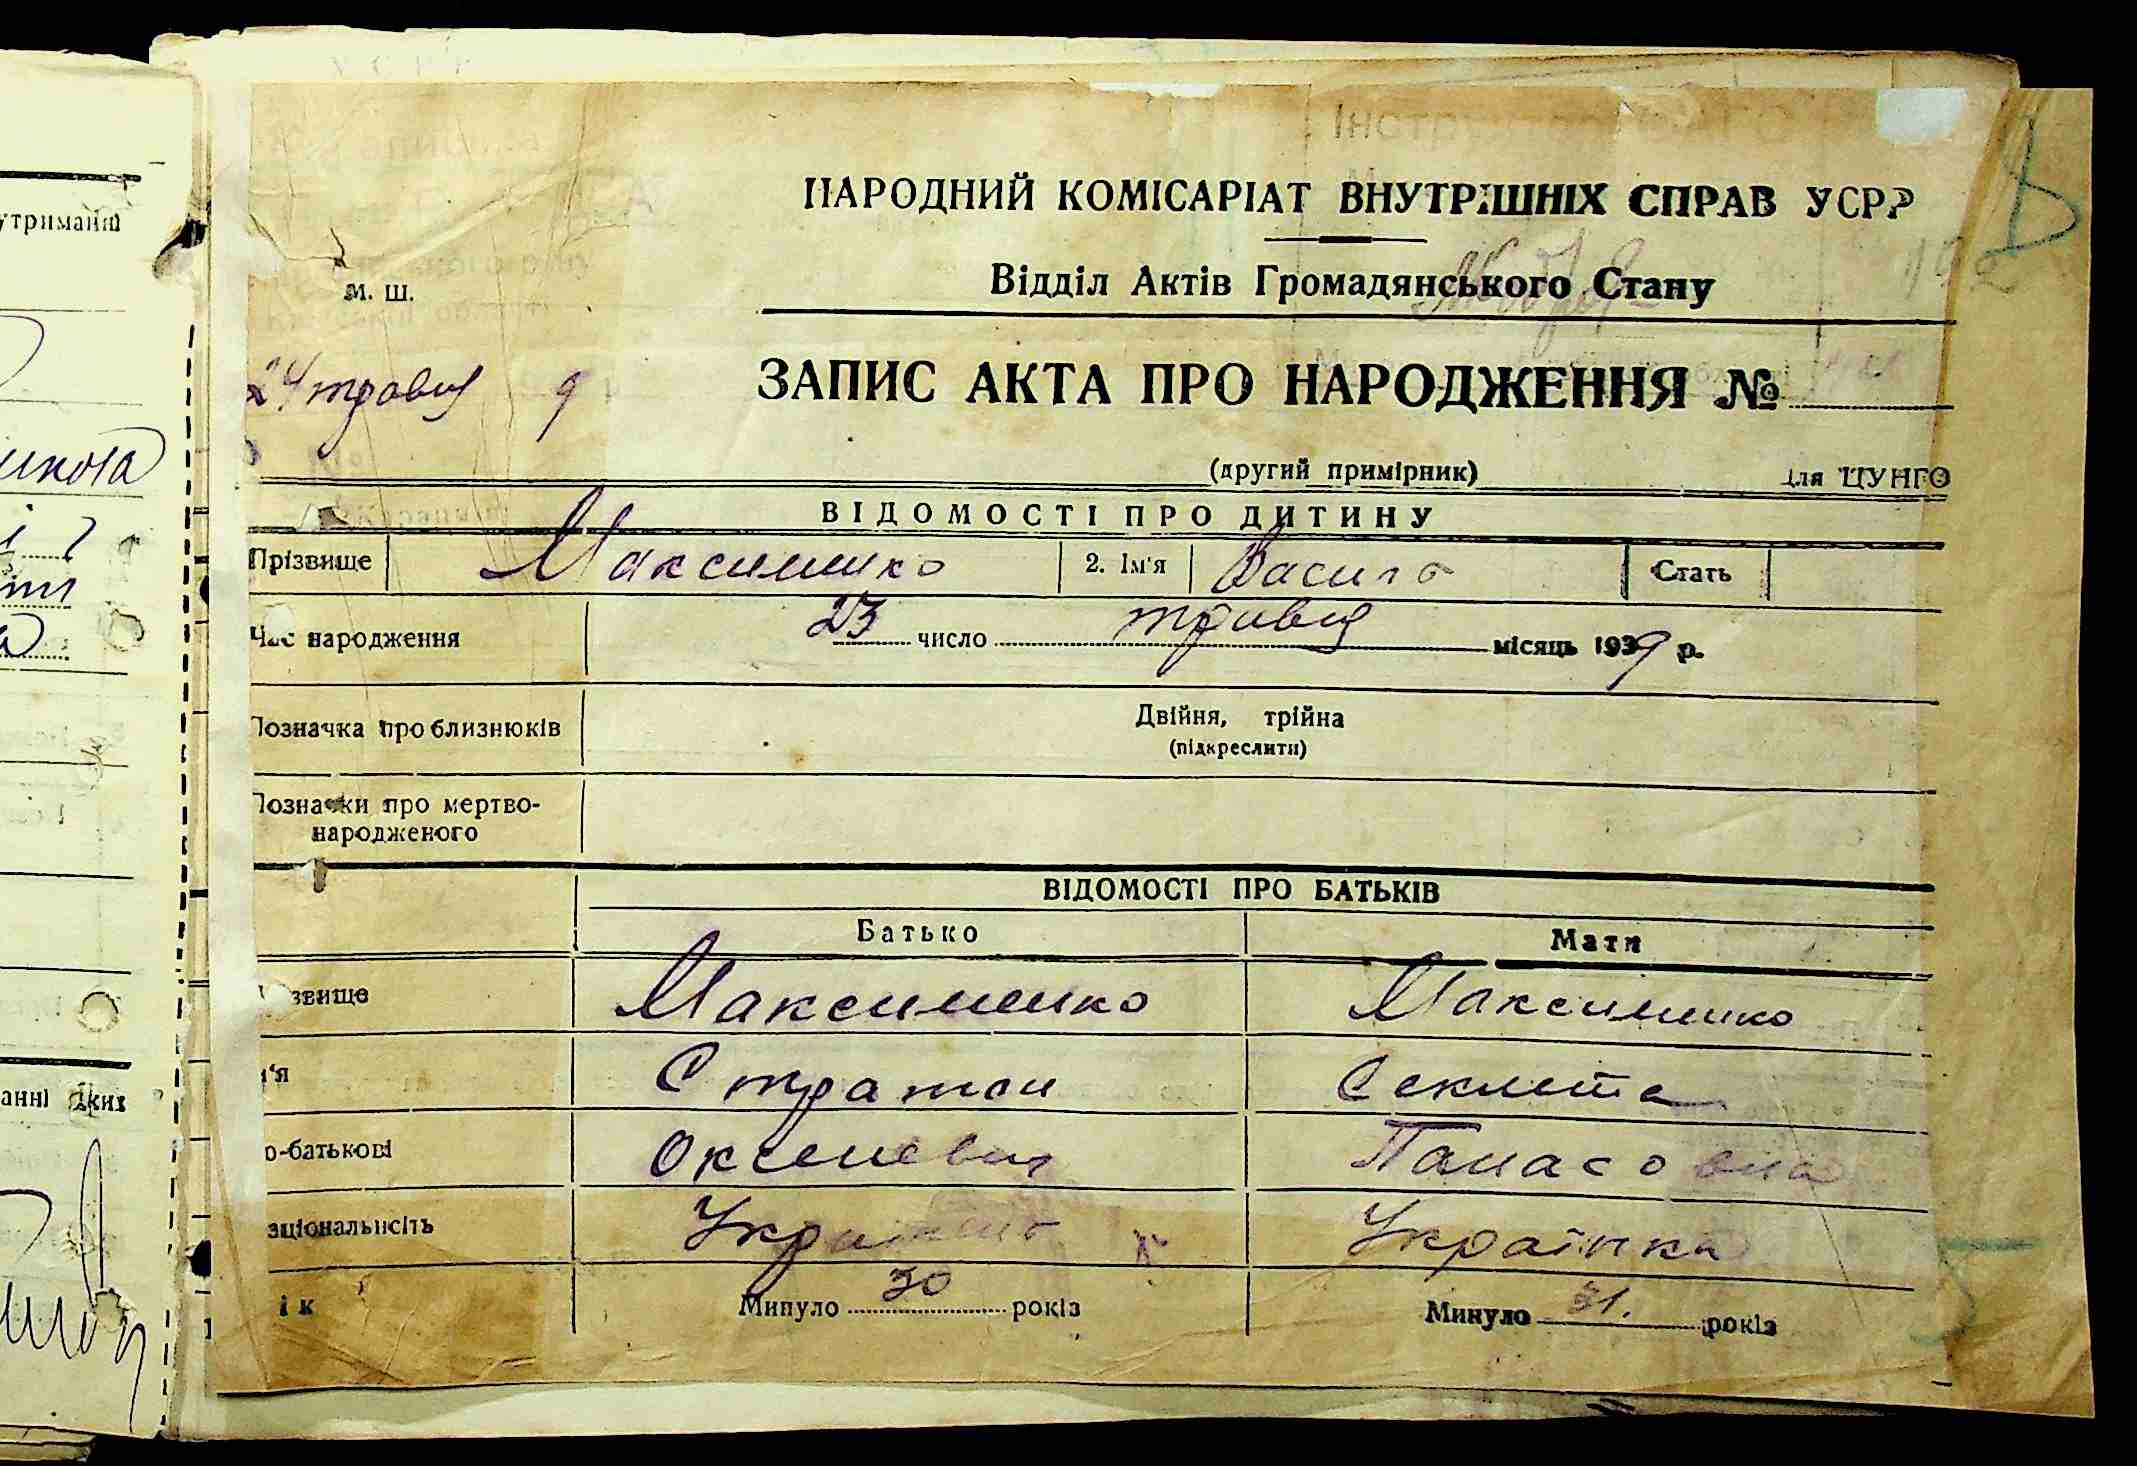 утриманні
НАРОДНИЙ КОМІСАРІАТ ВНУТРІШНІХ СПРАВ УСРР
М. Ш.
Відділ Актів Громадянського Стану
24 травня 9
ЗАПИС АКТА ПРО НАРОДЖЕННЯ №
(другий примірник) для ЦУНГО
ВІДОМОСТІ ПРО ДИТИНУ
Прізвище Максименко 2. Ім'я Василь Стать
Час народження 23 число травня місяць 1939 р.
Позначка про близнюків Двійня, трійна
(підкреслити)
Позначки про мертво-
народженого
ВІДОМОСТІ ПРО БАТЬКІВ
Батько Мати
звище Максименко Максименко
м'я Стратон Секлета
анні яких
о-батькові Оксенович Панасовна
аціональність Українець Українка
ік Минуло 30 років Минуло 31. років